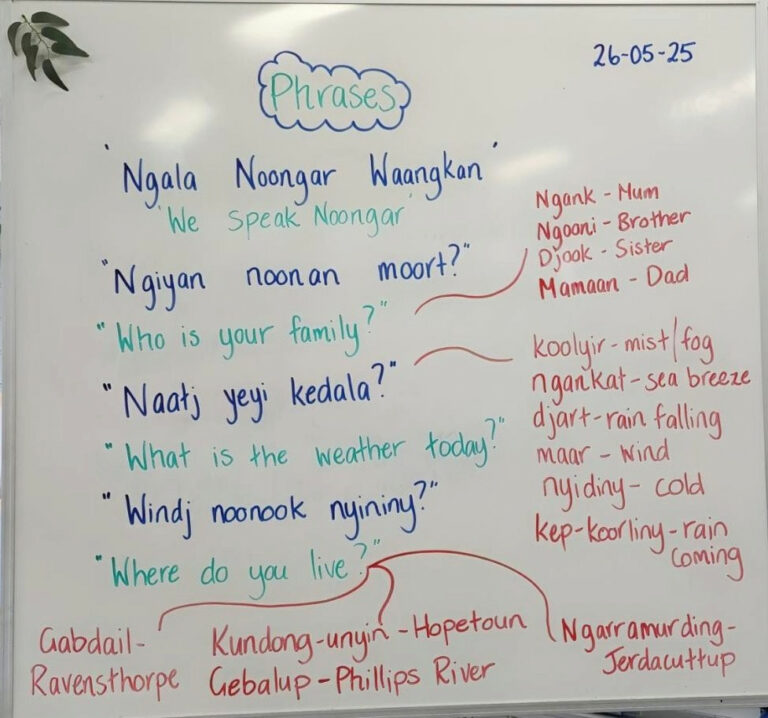 26-05-25
Phrases
'Ngala Noongar Waangkan'
'We speak Noongar'
"Ngiyan noonan moort?"
"Who is your family?"
Ngank - Mum
Ngooni - Brother
Djook - Sister
Mamaan - Dad
"Naatj yeyi kedala?"
"What is the weather today?"
koolyir - mist/fog
ngankat - sea breeze
djart - rain falling
maar - wind
nyidiny - cold
kep-koorliny - rain
coming
"Windj noonook nyininy?"
"Where do you live?"
Gabdail -
Ravensthorpe
Kundong-unyin - Hopetoun
Gebalup - Phillips River
Ngarramurding -
Jerdacuttup